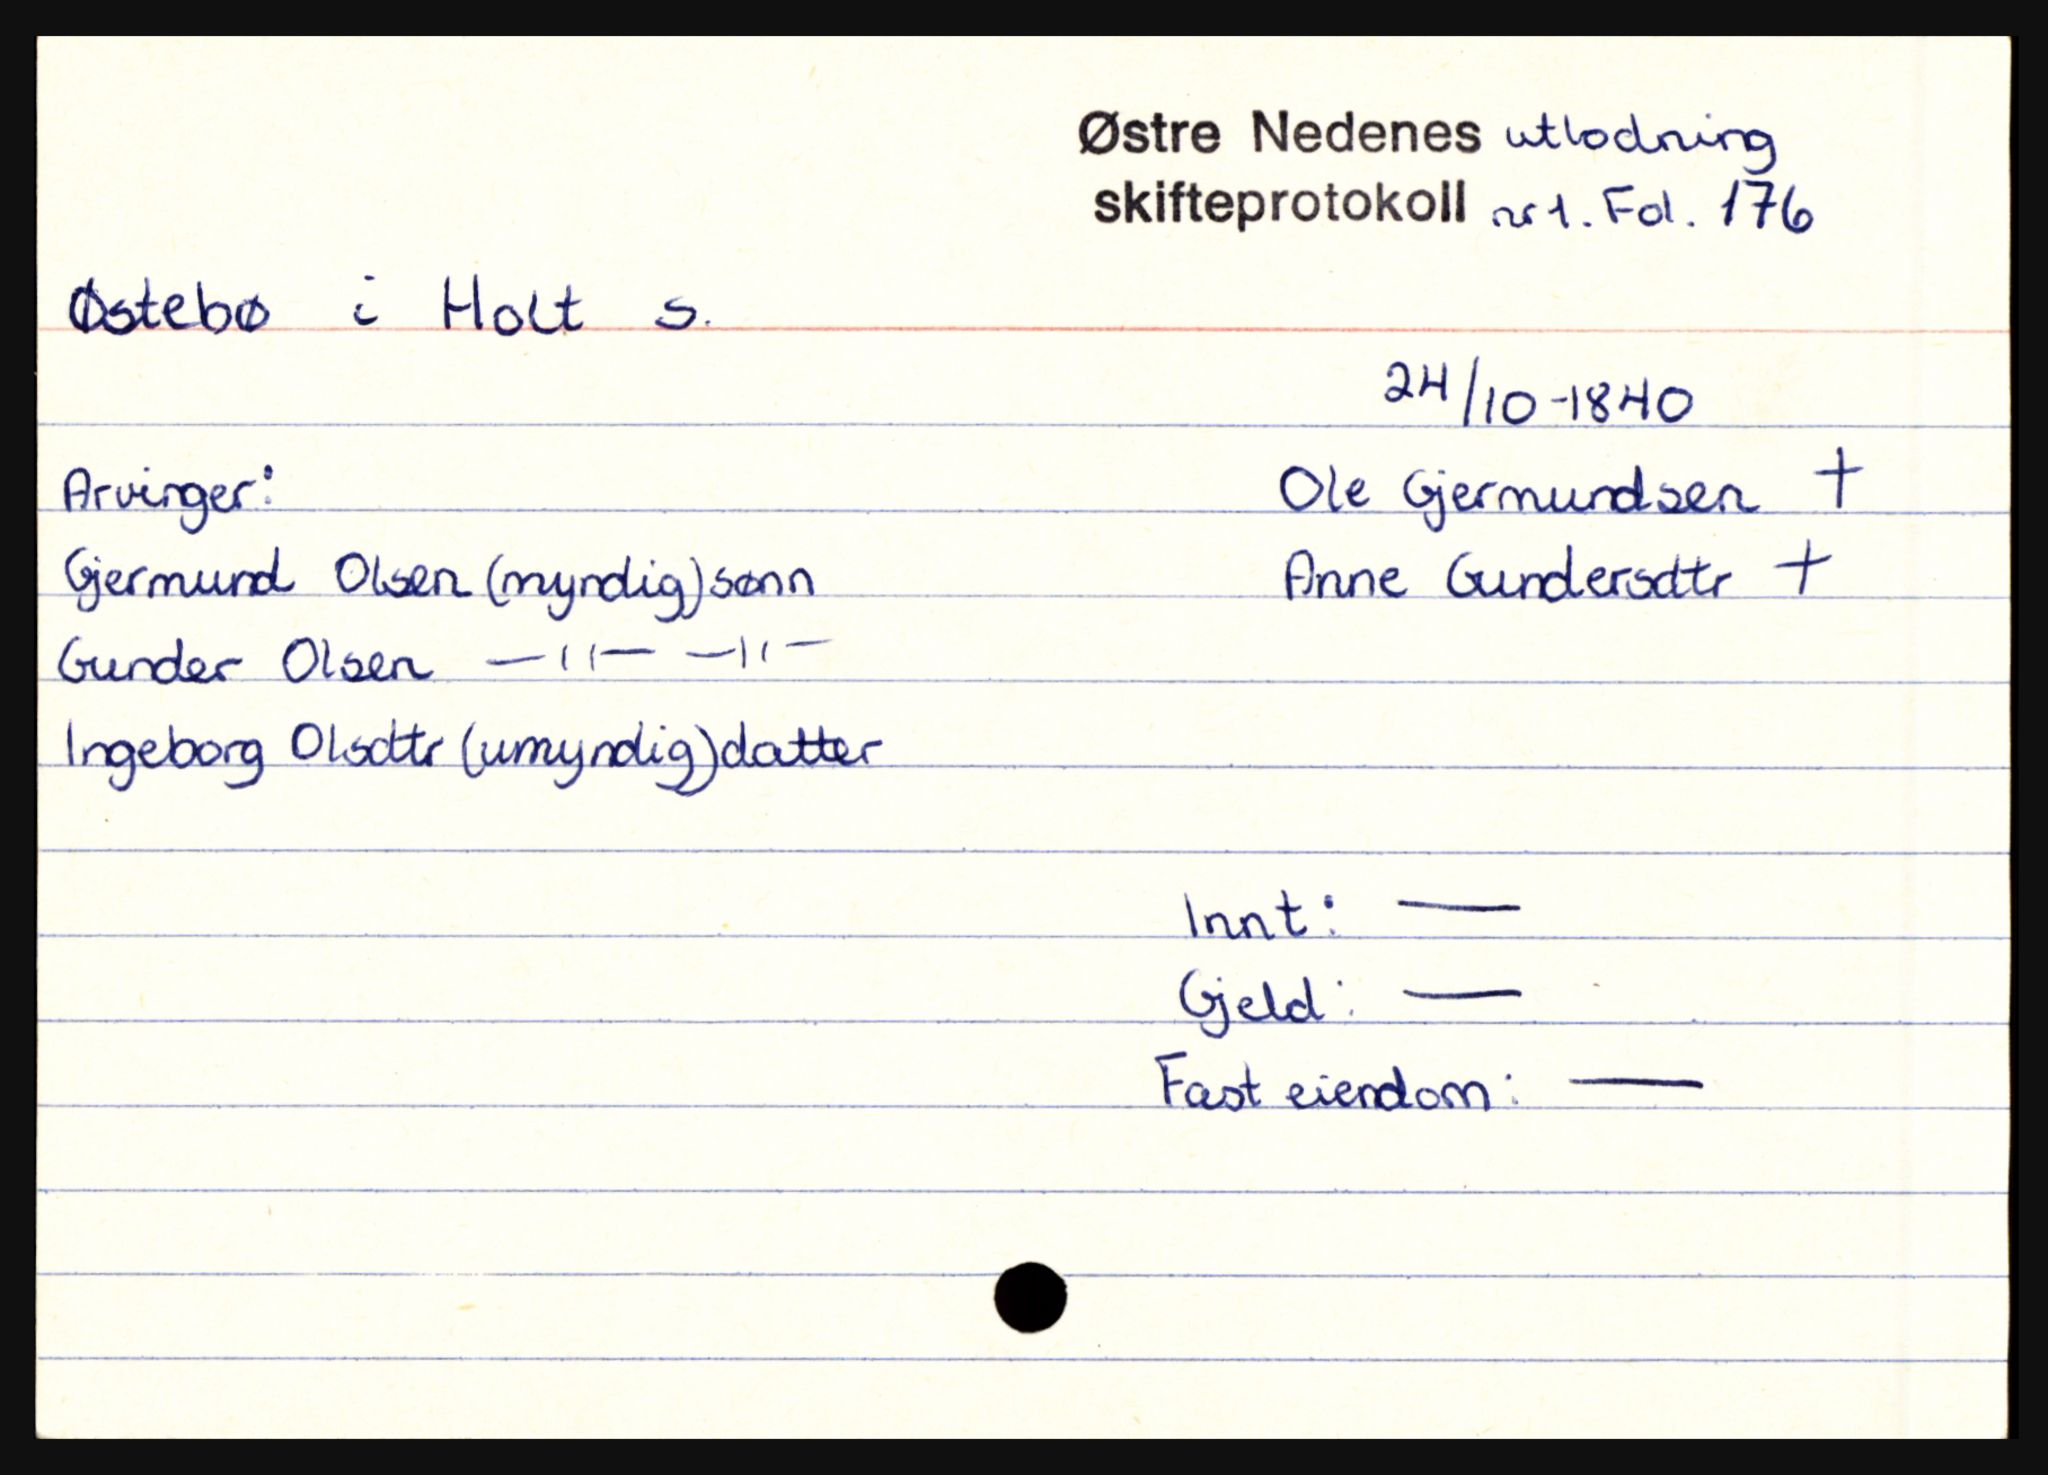 Østre Nedenes utlodning
skifteprotokoll nr 1. Fol. 176
Østebø i Holt s.
24/10-1840
Arvinger:
Ole Gjermundsen †
Gjermund Olsen (myndig) sønn
Anne Gundersdtr †
Gunder Olsen —〃— —〃—
Ingeborg Olsdtr (umyndig) datter
Innt: —
Gjeld: —
Fast eiendom: —